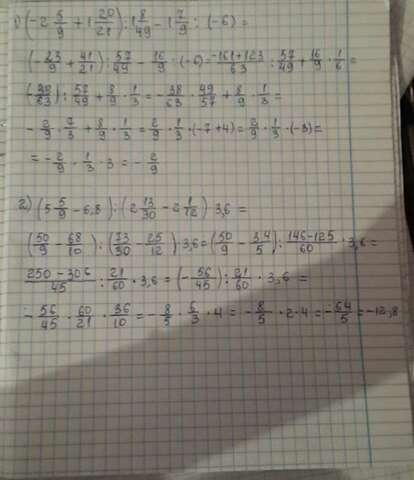 1) (-2 5/9 + 1 20/21) : 1 8/49 - 1 7/9 : (-6) =
(-23/9 + 41/21) : 57/49 - 16/9 : (-6) = (-161+123)/63 : 57/49 + 16/9 · 1/6 =
(-38/63) : 57/49 + 8/9 · 1/3 = -38/63 · 49/57 + 8/9 · 1/3 =
- 2/9 · 7/3 + 8/9 · 1/3 = 2/9 · 1/3 · (-7+4) = 2/9 · 1/3 · (-3) =
= - 2/9 · 1/3 · 3 = - 2/9
2) (5 5/9 - 6,8) : (2 13/30 - 2 1/12) · 3,6 =
(50/9 - 68/10) : (73/30 - 25/12) · 3,6 = (50/9 - 34/5) : (146-125)/60 · 3,6 =
(250-306)/45 : 21/60 · 3,6 = (-56/45) : 21/60 · 3,6 =
- 56/45 · 60/21 · 36/10 = - 8/5 · 6/3 · 4 = - 8/5 · 2 · 4 = - 64/5 = -12,8